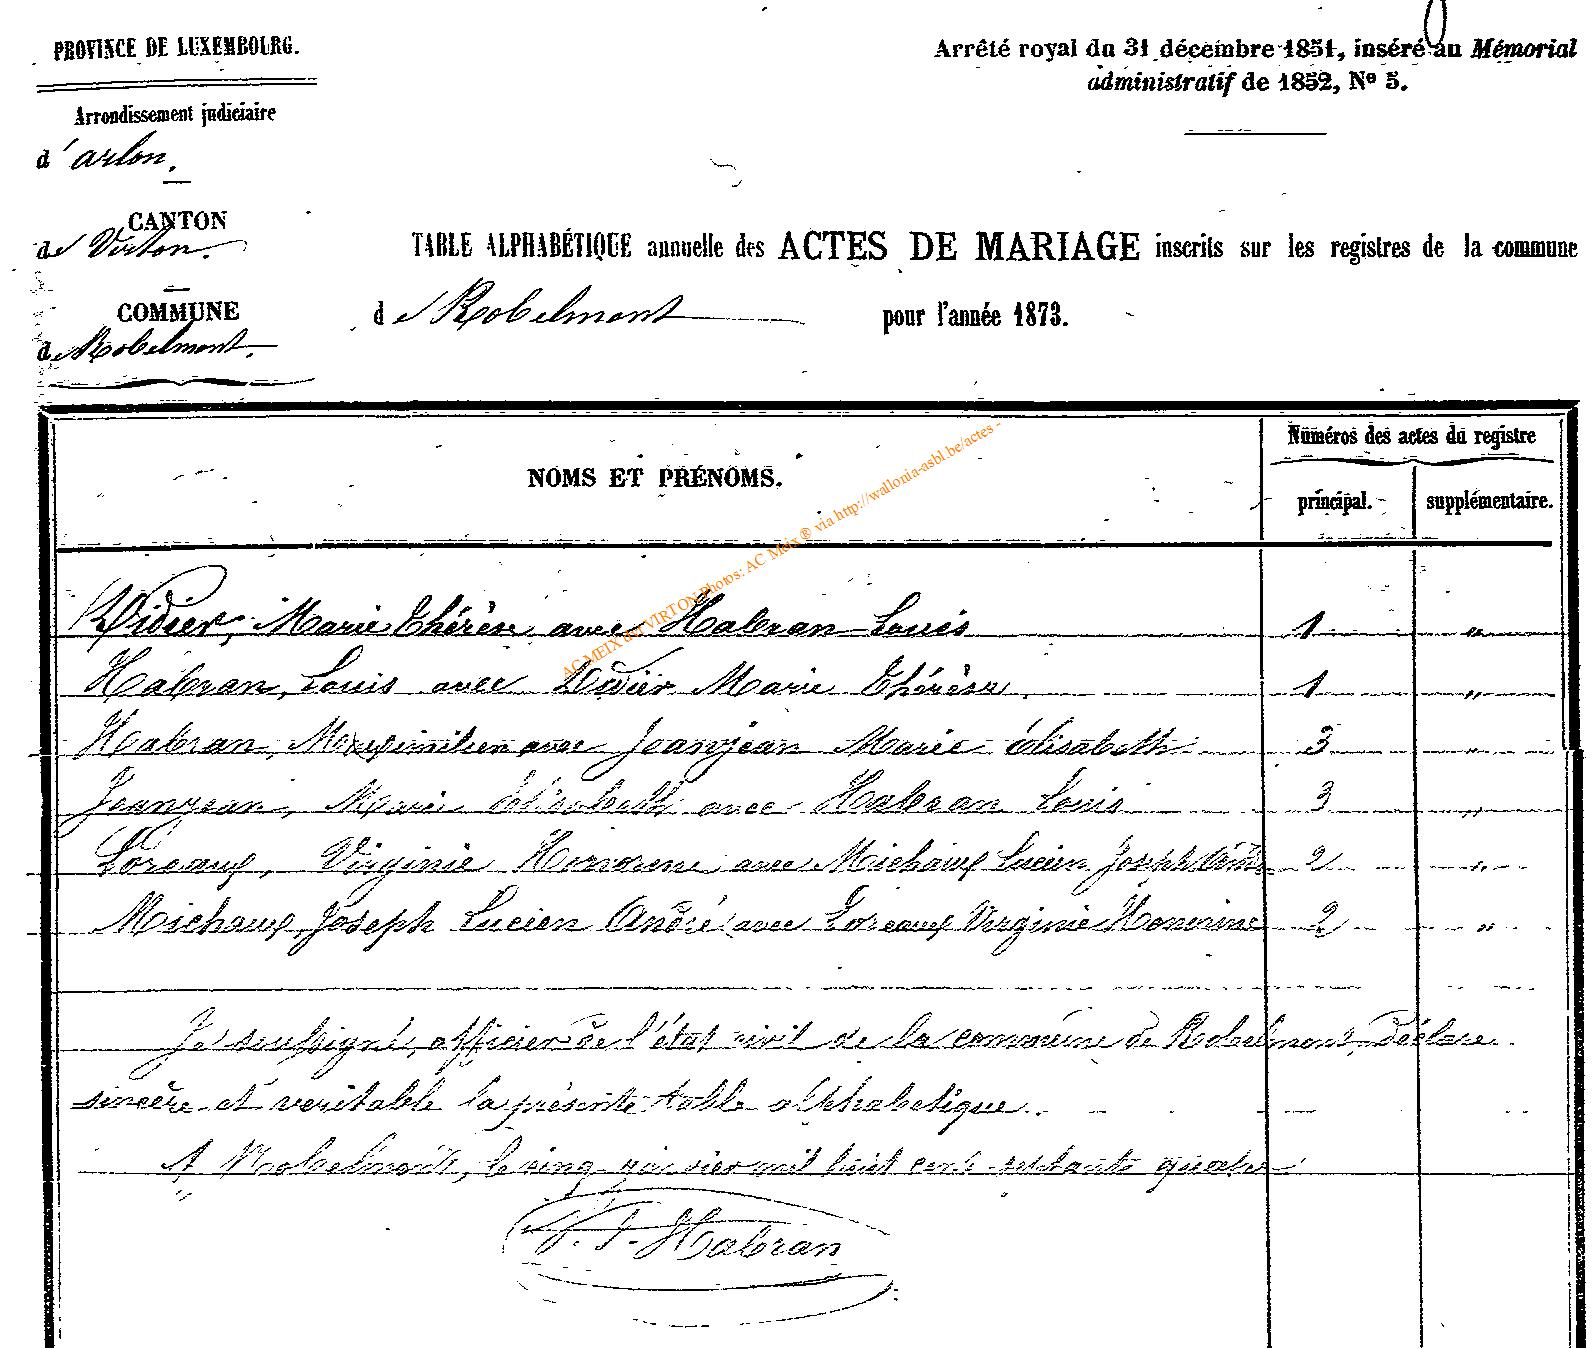 PROVINCE DE LUXEMBOURG.
Arrondissement judiciaire
d'arlon.
CANTON
de Virton.
COMMUNE
de Robelmont.
Arrêté royal du 31 décembre 1851, inséré au Mémorial
administratif de 1852, Nº 5.
TABLE ALPHABÉTIQUE annuelle des ACTES DE MARIAGE inscrits sur les registres de la commune
de Robelmont pour l'année 1873.
NOMS ET PRÉNOMS.
Numéros des actes du registre
principal. supplémentaire.
AC MEIX dit VIRTON Photos: AC Meix ® via http://wallonia-asbl.be/actes -
Didier, Marie Thérèse avec Habran Louis 1 "
Habran, Louis avec Didier Marie Thérèse. 1 "
Habran, Maximilien avec Jeanjean Marie Élisabeth 3 "
Jeanjean, Marie Elisabeth avec Habran Louis 3 "
Loreaux, Virginie Honorine avec Michaux Lucien Joseph 2 "
Michaux, Joseph Lucien André avec Loreaux Virginie Honorine 2 "
Je soussigné, officier de l'état civil de la commune de Robelmont, déclare
sincère et veritable la présente table alphabetique.
A Robelmont, le cinq janvier mil huit cent septante quatre.
Habran